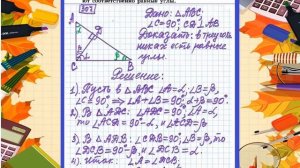 ют соответственно равные углы.
303
Дано: △ABC
∠C=90°, CD⊥AB
Доказать: в треуголь
никах есть равные
углы.
Решение:
1). Пусть в △ABC ∠A=α, ∠B=β,
∠C=90° ⇒ ∠A+∠B=90°, α+β=90°
2). В △ADC: ∠ADC=90°, ∠A=α,
то ∠ACD=90°-α, и ∠ACD=β
∠B=β, то
и ∠DCB=α
4). Итак: ∠A=∠DCB,